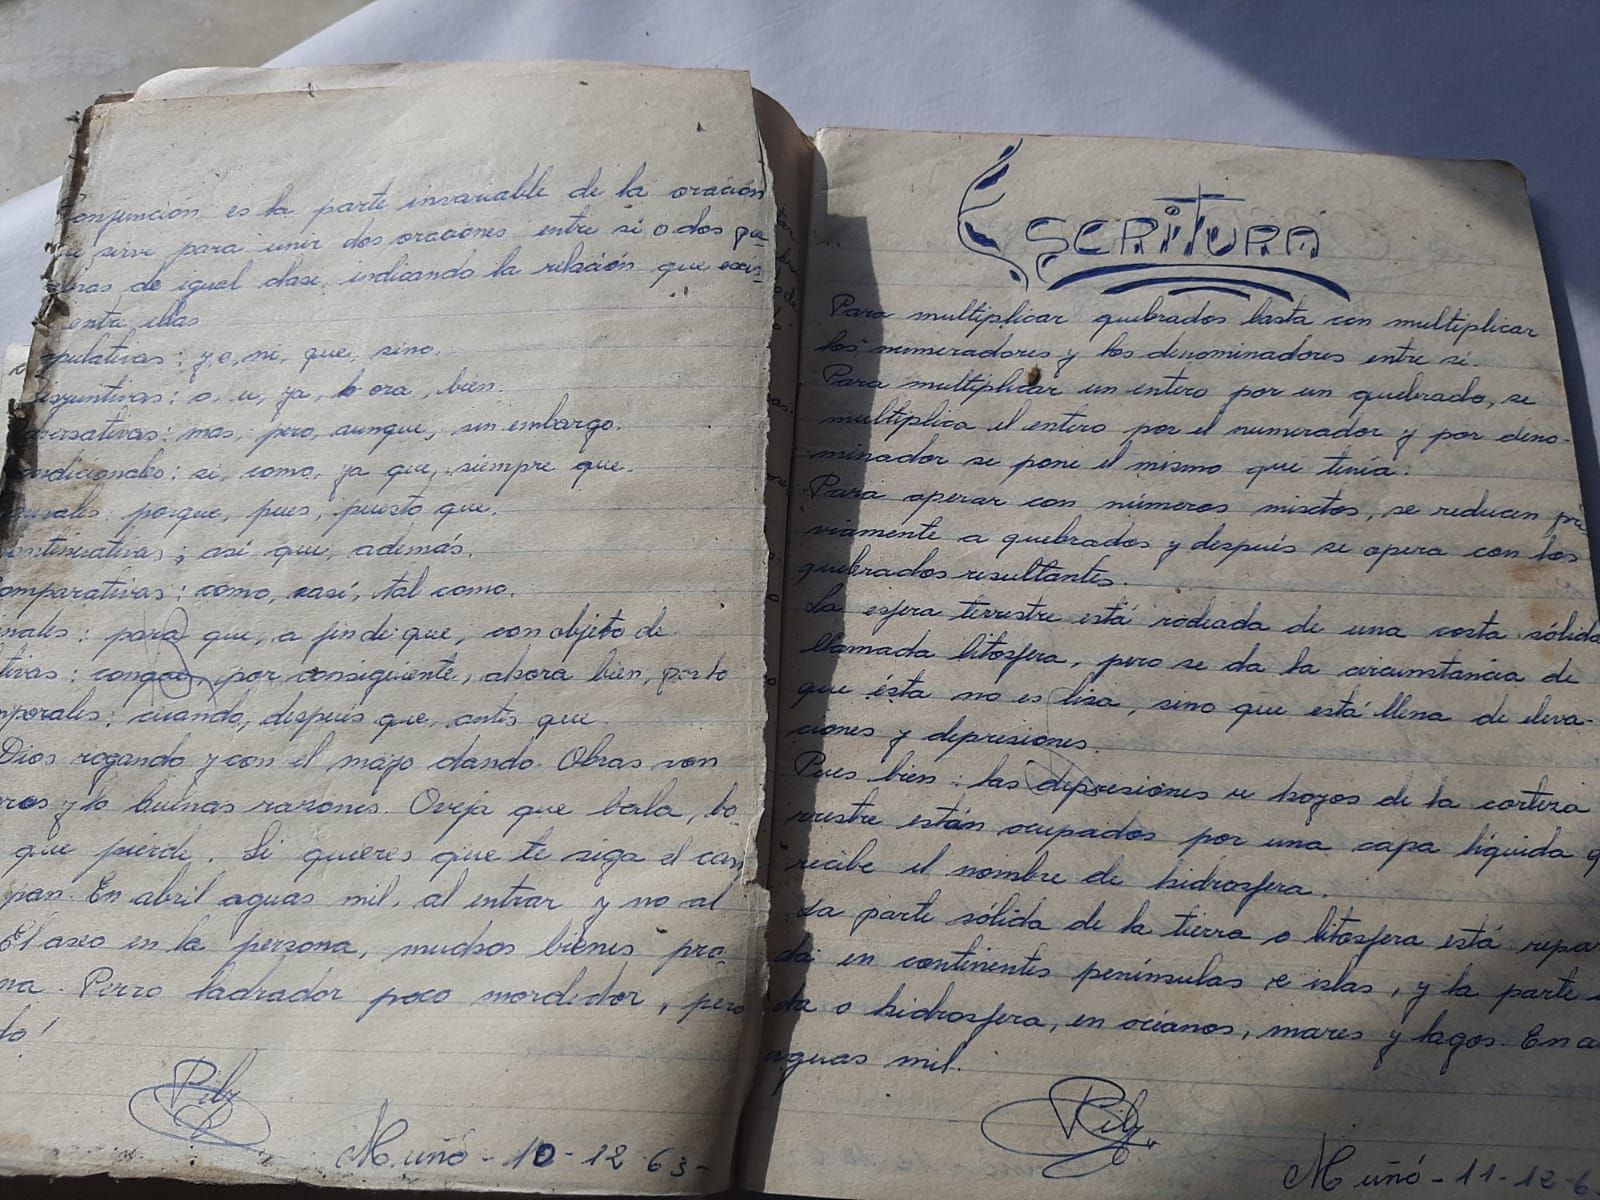 onjunción es la parte invariable de la oración
sirve para unir dos oraciones entre si o dos pa-
bras de igual clase, indicando la relación que exis-
entre ellas
pulativas: y, o, ni, que, sino.
isyuntivas: o, u, ya, ora, bien.
versativas: mas, pero, aunque, sin embargo.
ndicionales: si, como, ya que, siempre que.
usales: porque, pues, puesto que.
ontinuativas; así que, además.
omparativas: como, casí, tal como.
nales: para que, a fin de que, con objeto de
tivas: conque, por consiguiente, ahora bien, por lo
mporales: cuando, despues que, antes que.
Dios rogando y con el mazo dando. Obras son
ores y no buenas razones. Oveja que bala, bo-
que pierde. Si quieres que te siga el can
pan. En abril aguas mil, al entrar y no al
El aseo en la persona, muchos bienes pro-
na. Perro ladrador poco mordedor, pero
do!
Pily
Muñó - 10-12 63-
ESCRITURA
Para multiplicar quebrados basta con multiplicar
los numeradores y los denominadores entre sí.
Para multiplicar un entero por un quebrado, se
multiplica el entero por el numerador y por deno-
minador se pone el mismo que tenía.
Para operar con números mixtos, se reducen pre
viamente a quebrados y después se opera con los
quebrados resultantes.
La esfera terrestre está rodeada de una costa sólida
llamada litosfera, pero se da la circunstancia de
que ésta no es lisa, sino que está llena de eleva-
ciones y depresiones.
Pues bien: las depresiones u hozos de la corteza
rrestre están ocupados por una capa líquida q
recibe el nombre de hidrosfera.
La parte sólida de la tierra o litosfera está repar
da en continentes penínsulas e islas, y la parte
da o hidrosfera, en océanos, mares y lagos. En a
aguas mil.
Pily
Muñó - 11-12-6